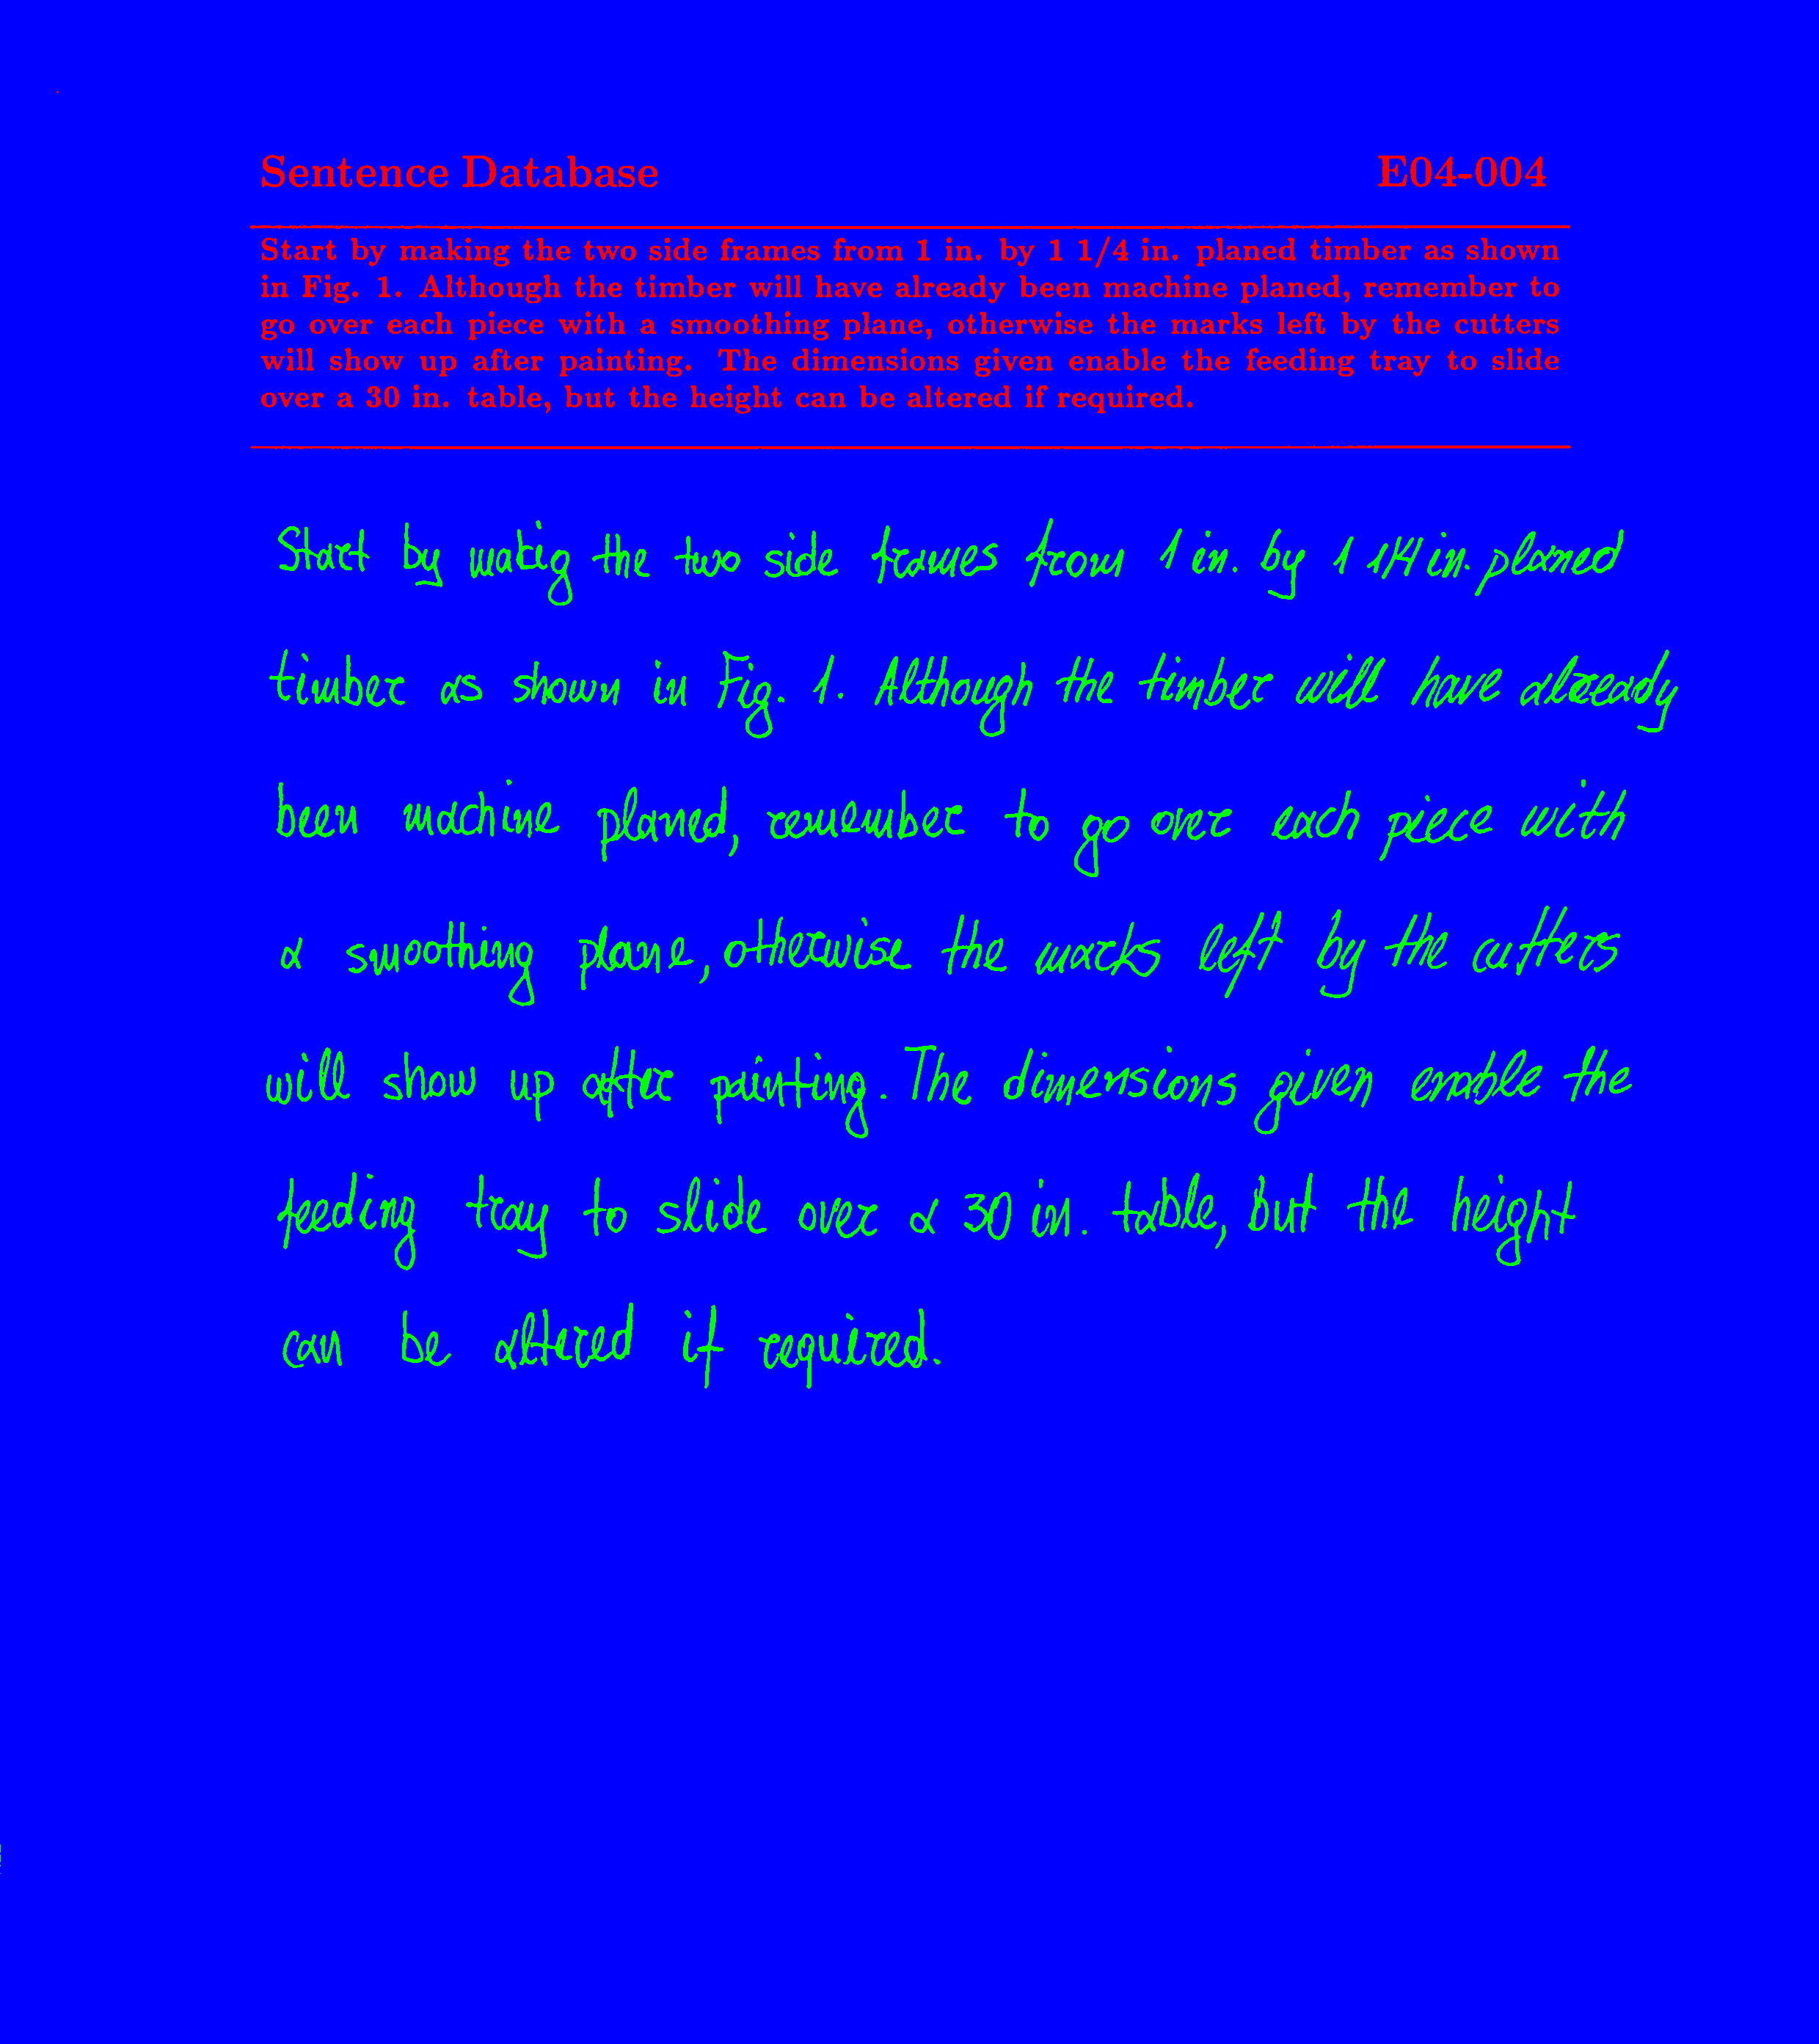 Sentence Database E04-004
Start by making the two side frames from 1 in. by 1 1/4 in. planed timber as shown
in Fig. 1. Although the timber will have already been machine planed, remember to
go over each piece with a smoothing plane, otherwise the marks left by the cutters
will show up after painting. The dimensions given enable the feeding tray to slide
over a 30 in. table, but the height can be altered if required.
Start by makig the two side frames from 1 in. by 1 1/4 in. planed
timber as shown in Fig. 1. Although the timber will have already
been machine planed, remember to go over each piece with
a smoothing plane, otherwise the marks left by the cutters
will show up after painting. The dimensions given enable the
feeding tray to slide over a 30 in. table, but the height
can be altered if required.